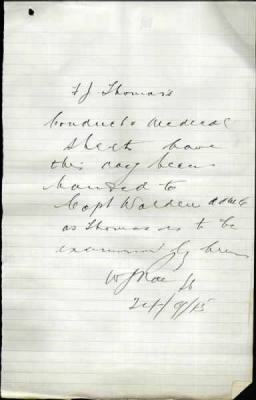 F J Thomas's
Conduct & Medical
Sheet have
this day been
handed to
Capt Walden AAMC
as Thomas is to be
examined by him
W J
24/9/15